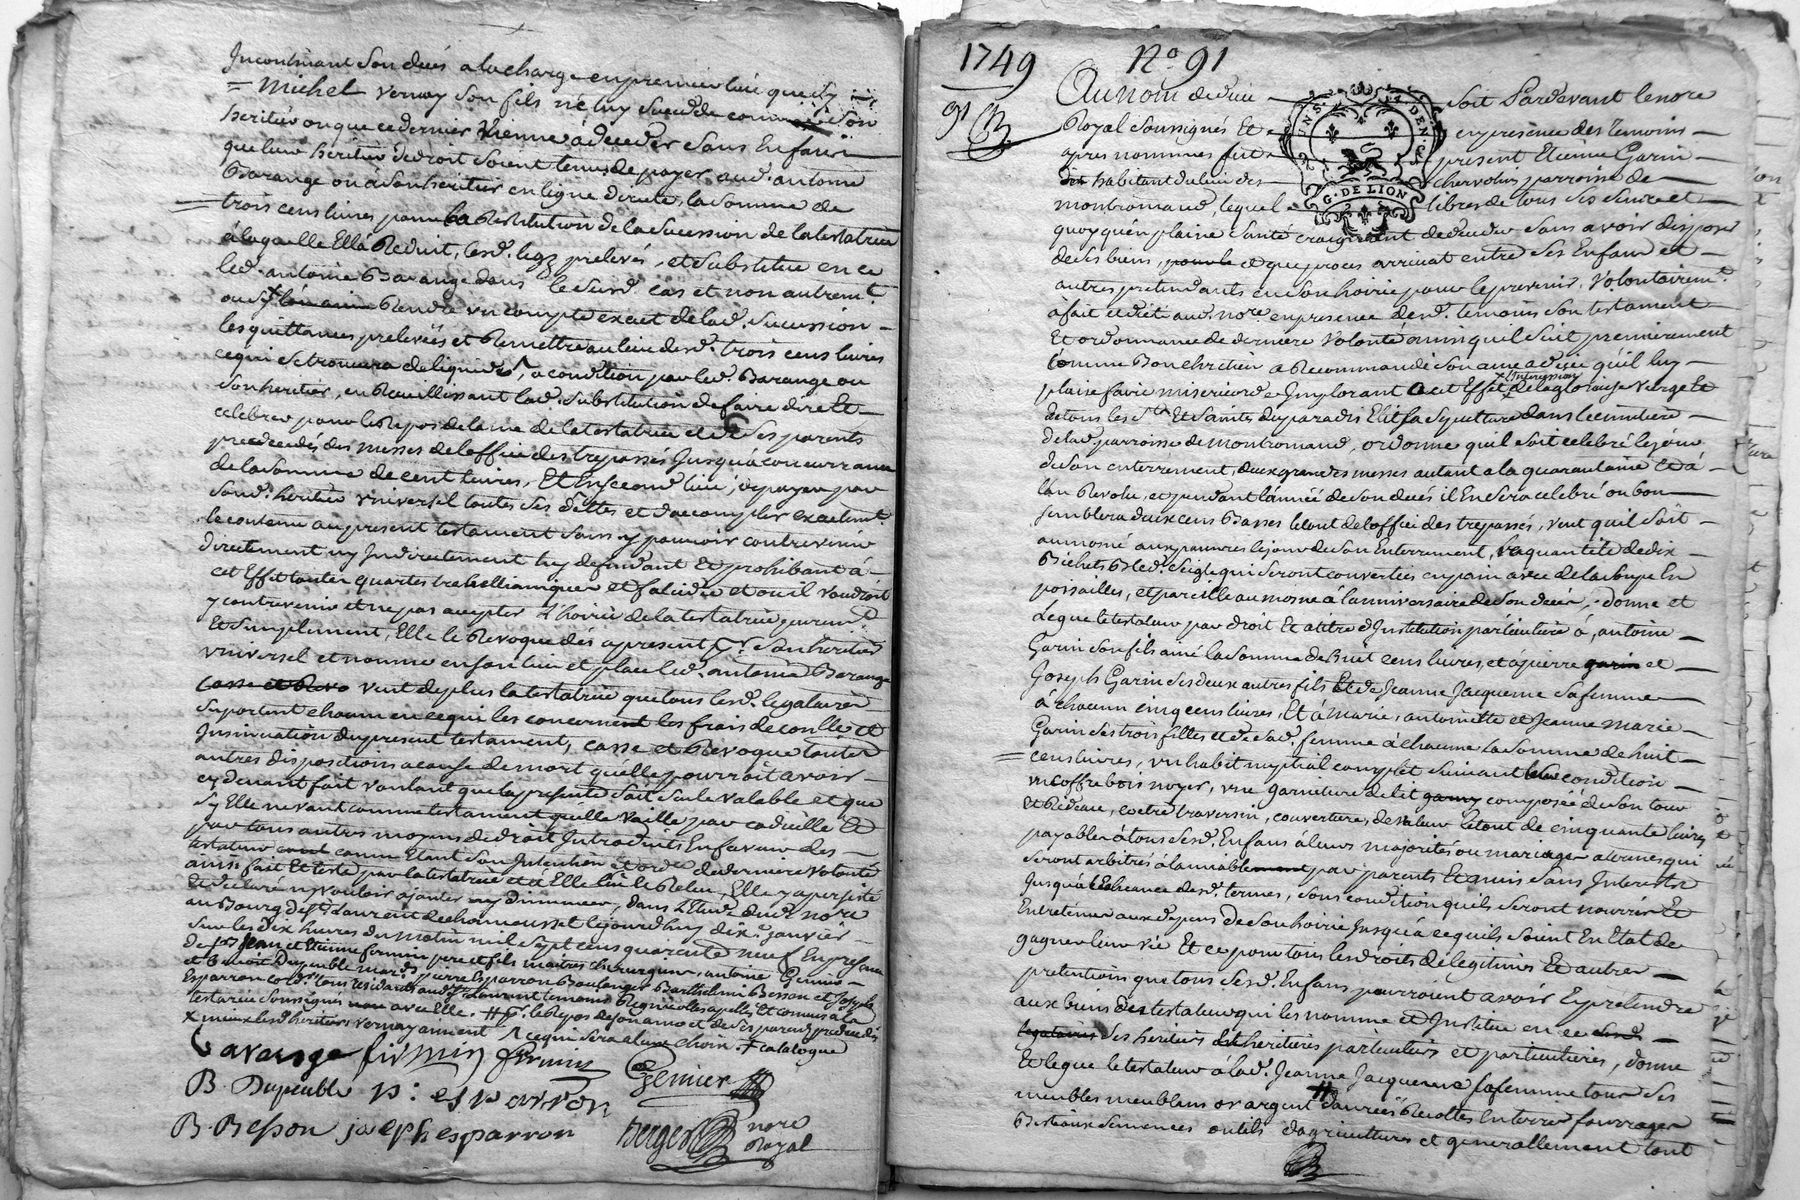 Incontinant son decés a la charge en premier lieu que sy
= Michel vernay son fils ne luy succede comme son
heritier ou que ce dernier vienne à deceder sans Enfans
que leur heritier de droit soient tenus de payer aud. antoine
Barange ou à son heritier en ligne directe, la somme de
trois cens livres pour la Restitution de la sucession de la testatrice
à laquelle Elle Reduit, lesd. legz prelevés, et substitue en ce
led. antoine Barange dans le susd. cas et non autremt.
ou sy Rendre un compte exact de lad. sucession
les quittances prelevées et Remettre au lieu desd. trois cens livres
ce qui se trouvera de liquide, a condition par led. Barange ou
son heritier, en Recueillissant lad. substitution de faire dire Et
celebrer pour le Repos de lame de la testatrice et de ses parents
predecedés des messes de loffice des trepassés Jusqu'à concurrance
de la somme de cent livres, Et En second lieu, de payer par
sond. heritier universel toutes ses dettes et d'accomplir exactemt.
le contenu au present testament sans y pouvoir contrevenir
directement ny Indirectement luy deffendant Et prohibant à
cet Effet toutes quartes trebellianiques et falcidie et ou il voudroit
y contrevenir et ne pas accepter L'hoirie de la testatrice purement
Et simplement, Elle le Revoque des apresent pr. son heritier
universel et nomme en son lieu et place led. antoine Barange
casse et Revo veut de plus la testatrice que tous lesd. legataires
suportent chacun en ce qui les concernent les frais de conlle et
Insinuation du present testament, casse et Revoque toutes
autres dispositions a cause de mort qu'elle pourroit avoir
cy devant fait voulant que la presente soit seule valable et que
sy Elle ne vaut comme testament qu'elle vaille par codicille Et
par tous autres moyens de droit Introduits En faveur des
testateur comme Etant son Intention et ordce de derniere volonté
ainsi fait Et testé par la testatrice et à Elle lû le Releu, Elle y a persisté
Et declaré n'y vouloir ajouter ny diminuer, dans L'Etude dud. nore
au Bourg de St. Laurent de chamousset le jourd'huy dix janvier
sur les Dix heures du matin mil sept cens quarante neuf En presence
de srs Jean et Etienne firmin pere et fils maitres chirurgiens, antoine Genier
et Benoit Dupeuble mards. pierre Esparron Boulanger Barthelemi Besson et Joseph
Esparron cord. tous residants aud. St. Laurent temoins Requis et apellés Et connus a la
testatrice soussignés avec Elle. # pr. le Repos de son ame et de ses parens predecedés
x mieux lesd. heritiers vernay aiment ce qui sera a leur choix. + catalogue
Bavarenge firmin firmin
B. Dupeuble p: esparron Genier
B. Besson joseph esparron Berger nore
Royal
1749 No 91
91
Au nom de dieu soit Pardevant le nore
Royal soussignés Et en presence des temoins
apres nommés fut present Etienne Garin
habitant du lieu des chervolin parroisse de
montromand, lequel libres de tous ses sens et
quoy qu'en plaine santé craignant de deceder sans avoir disposé
de ses biens, et que proces arrivat entre ses Enfans et
autres pretendants en son hoirie pour le prevenir, Volontairemt.
à fait et dicté aud. nore en presence desd. temoins son testament
Et ordonnance de derniere Volonté ainsi quil suit premierement
Comme Bon chrétien a Recommandé son ame a dieu qu'il luy
plaise faire misericorde Implorant a cet Effet Intercession de la glorieuse Vierge Et
de tous les Sts. Et Saintes du paradis Elit sa sepulture dans le cimetiere
de lad. parroisse de montromand, ordonne quil soit celebré le jour
de son enterrement, deux grandes messes autant a la quarantaine et à
l'an Revolu, et pendant l'année de son decés il En sera celebré ou bon
semblera deux cens Basses le tout de l'office des trepassés, veut quil soit
aumosné aux pauvres le jour de son Enterrement, la quantité de dix
Bichets Bled. Seigle qui seront convertis en pain avec de la soupe En
poissailles, et pareille aumosne à l'anniversaire de son decés, donne et
Legue le testateur par droit Et à titre d'Institution particuliere à, antoine
Garin son fils ainé la somme de huit cens livres, et à pierre garin et
Joseph Garin ses deux autres fils Et de Jeanne Jacqueme sa femme
à chacun cinq cens livres, Et à Marie, antoinette et Jeanne marie
Garin ses trois filles et de lad. femme à chacune la somme de huit
= cens livres, un habit nuptial complet suivant leur condition
un coffre bois noyer, une garniture de lit composée de son tour
Et Rideaux, coetre traversin, couverture, de valeur le tout de cinquante livres
payables à tous sesd. Enfans à leurs majorités ou mariages a termes qui
seront arbitrés à l'amiable par parents Et amis sans Interests
Jusqu'a L'Echeance desd. termes, sous condition quils seront nourris Et
Entretenus aux depens de son hoirie Jusqu'à ce quils soient En Etat de
gagner leur vie Et ce pour tous les droits de legitimes Et autres
pretentions que tous sesd. Enfans pourroient avoir Et pretendre
aux biens des testateur qui les nomme et Institue en ce
legataires ses heritiers Et heritieres particuliers et particulieres, donne
Et legue le testateur à lad. Jeanne Jacqueme sa femme tous ses
meubles meublans or argent # danrées Recoltes Enterrées fourrages
Bestiaux semences outils d'agricultures et generallement tout
UNS DEN
G. DE LION